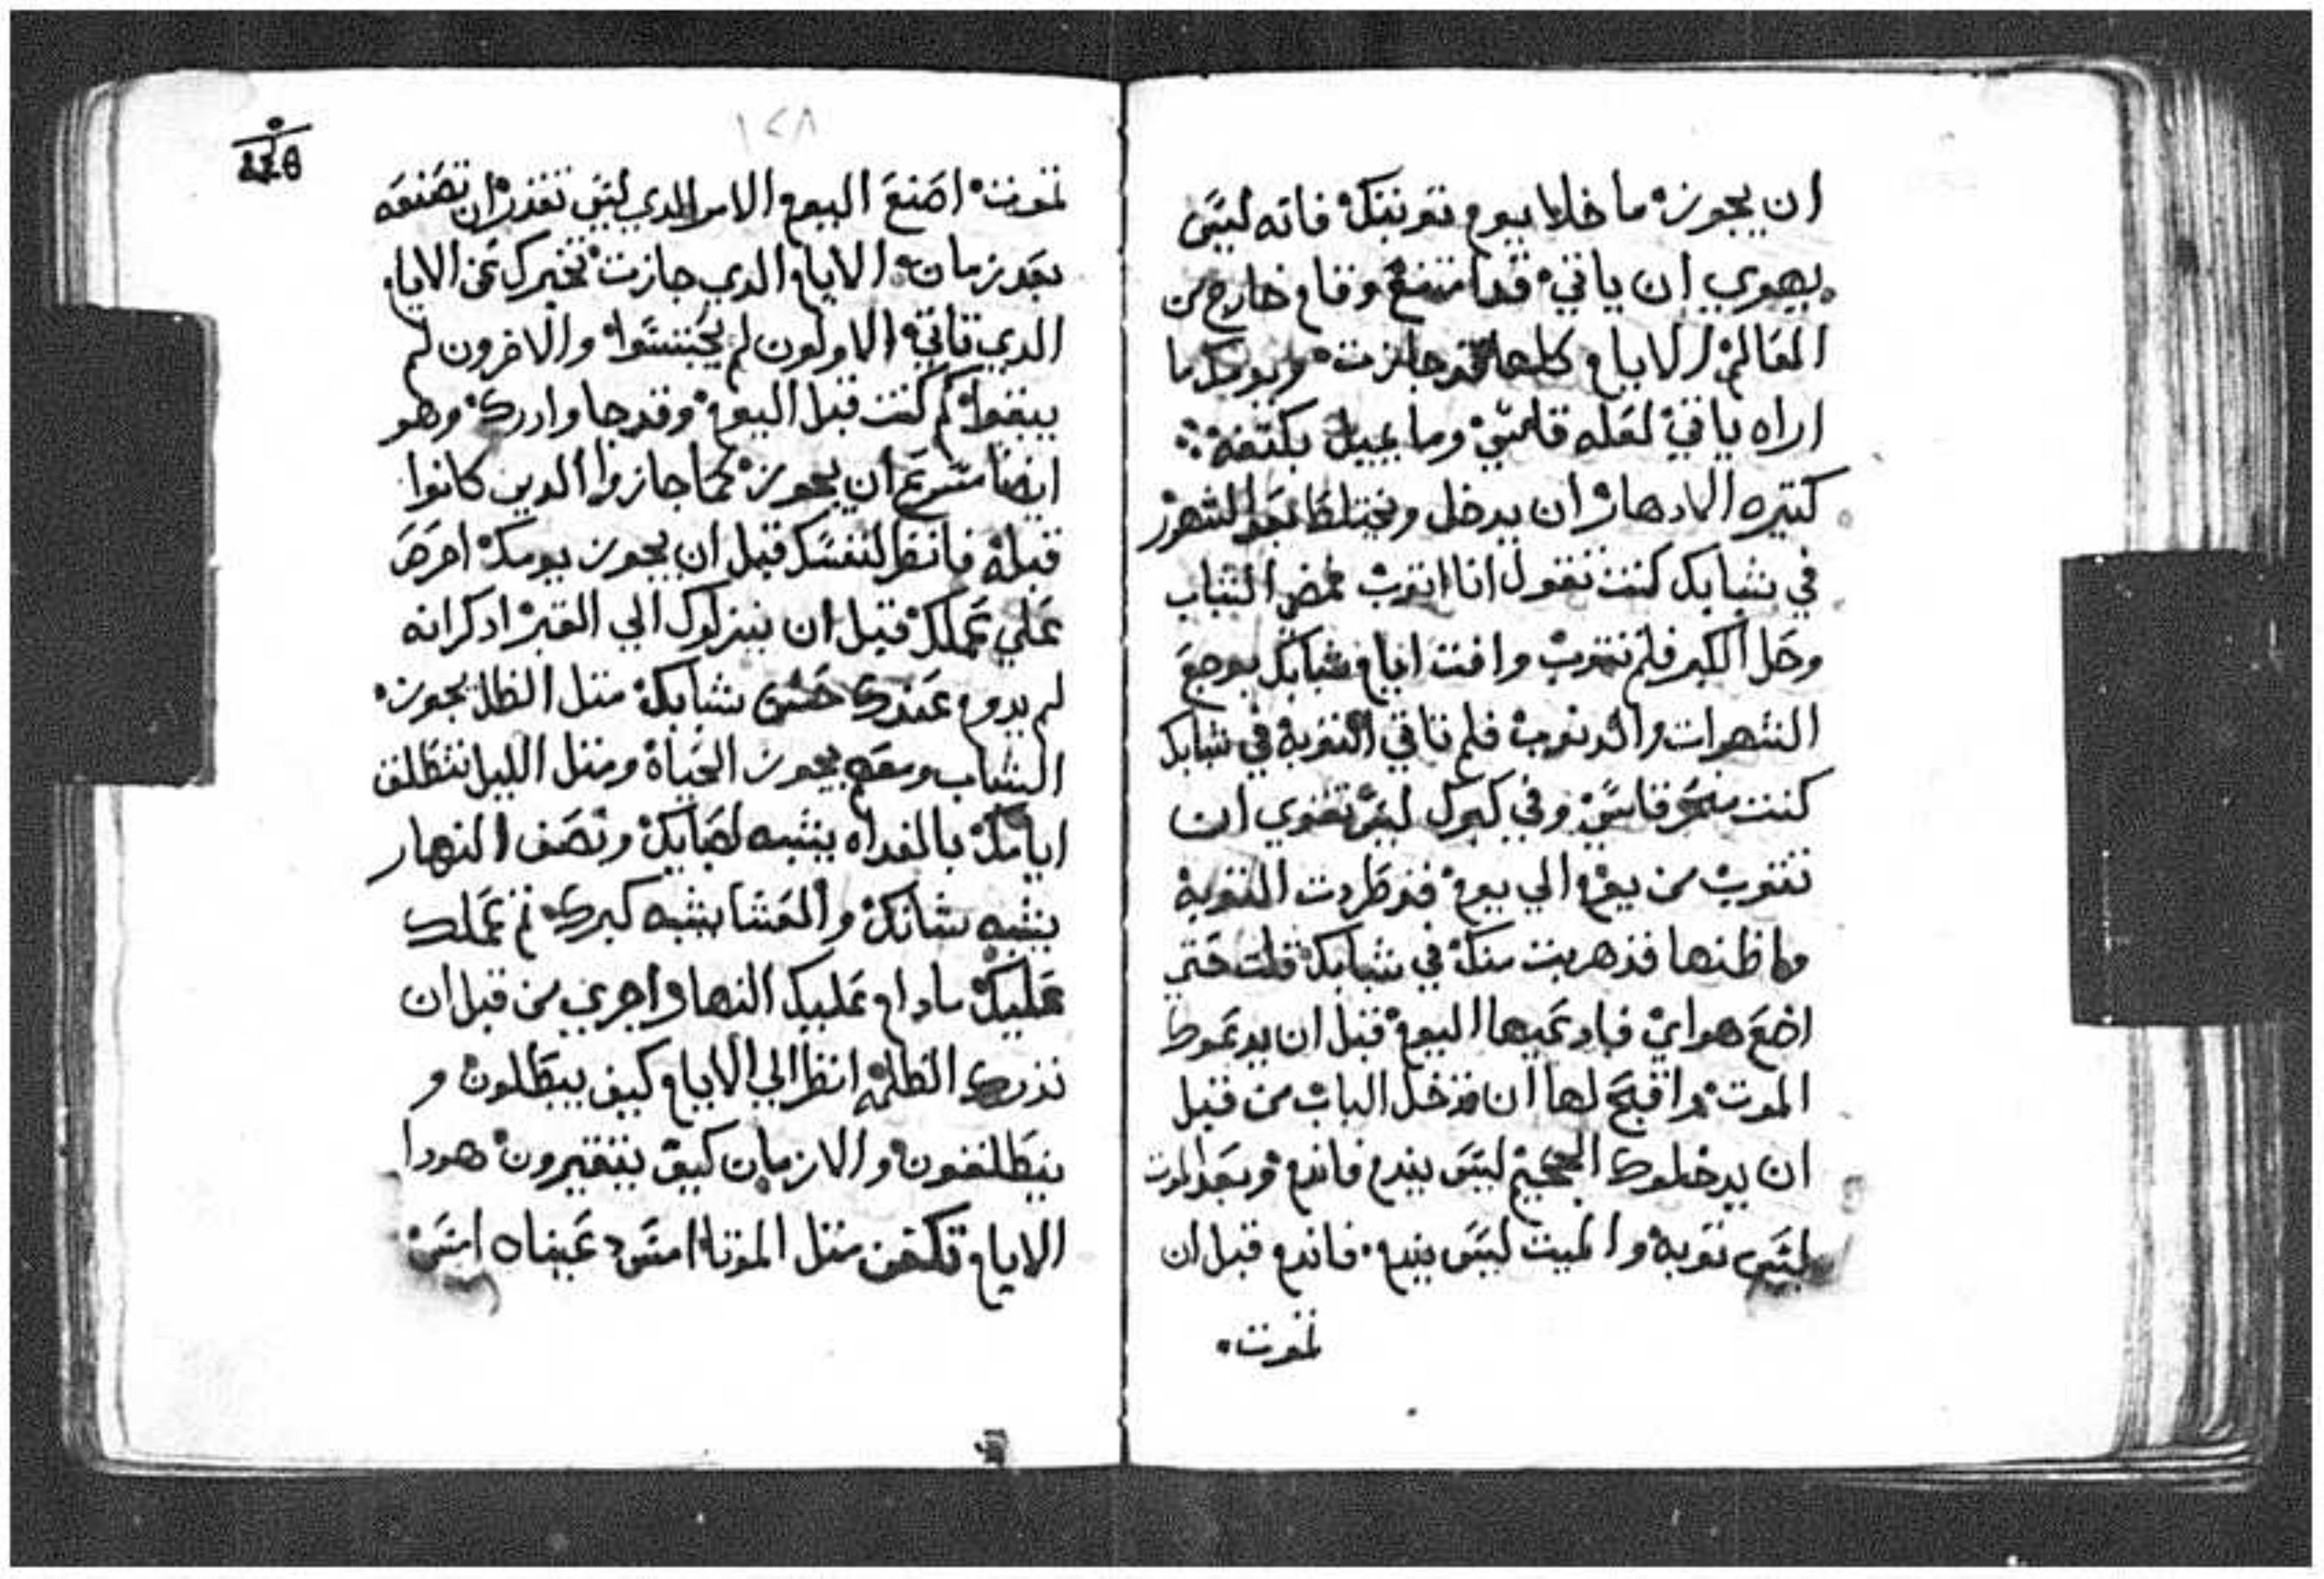 ان يجوز ما خلا يوم توبتك فانه ليس
يهوي ان ياتي قد امتنع وقام خارج من
العالم الايام كلها قد جازت ويومك ما
اراه ياتي لعله قلمتي وما يميل بكتفه
كتيره الادهار ان يدخل ويختلط الشهور
في شبابك كنت تقول انا اتوب مضي الشباب
وحل الكبر فلم تتوب وافنت ايام شبابك بوجع
الشهوات والدنوب فلم تاتي التوبة في شبابك
كنت قاسي وفي كبرك ليس تهوي ان
تتوب من يوم الي يوم قد طردت التوبة
ولا ظنها قد هربت منك في شبابك قلت حتي
اضع هواي فادعيها اليوم قبل ان يدعوك
الموت وافتح لها ان تدخل الباب من قبل
ان يدخلوك الجحيم ليس يندم فاندم وبعد الموت
ليس توبة والميت ليس يندم فاندم قبل ان
تموت
١٢٨
تموت اصنع اليوم الامر الدي ليس تقدر ان تصنعه
بعد زمان الايام الدي جازت تخبرك عن الايام
الدي تاتي الاولون لم يحتبسوا والاخرون لم
يبقوا لم كنت قبل اليوم وقد جا وادرك وهو
ايضا مسرع ان يجوز كما جازوا الدين كانوا
قبله فانظر لنفسك قبل ان يجوز يومك احرص
علي عملك قبل ان ينزلوك الي القبر ادكر انه
لم يدوم عندك حسن شبابك متل الظل يجوز
الشباب ومعه يجوز الحياة ومتل الليل تنطلق
ايامك بالغداه يشبه لصبايك ونصف النهار
يشبه شبابك والعشا يشبه كبرك تم عملك
عليك مادام عليك النهار واجري من قبل ان
تدرك الظلمه انظر الي الايام كيف يبطلون و
ينطلقون والازمان كيف يتغيرون هودا
الايام تكفن متل الموتا امس عيناه امس